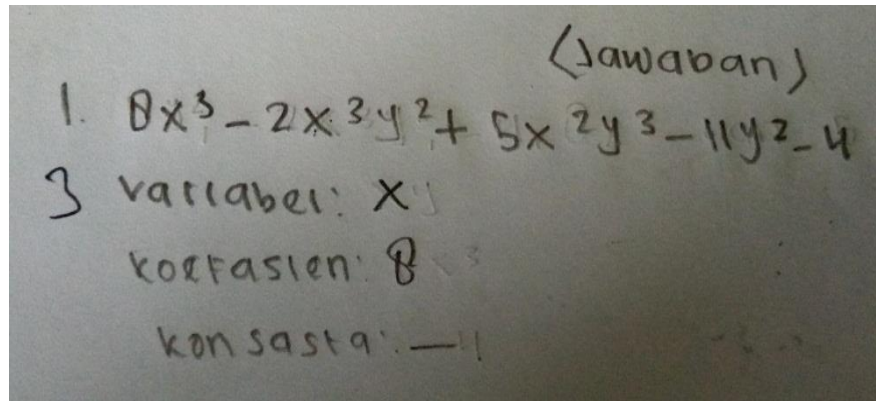 (Jawaban)
1. 8x³ - 2x³y² + 5x²y³ - 11y² - 4
3 variabel: x
koefasien: 8
konsasta: —